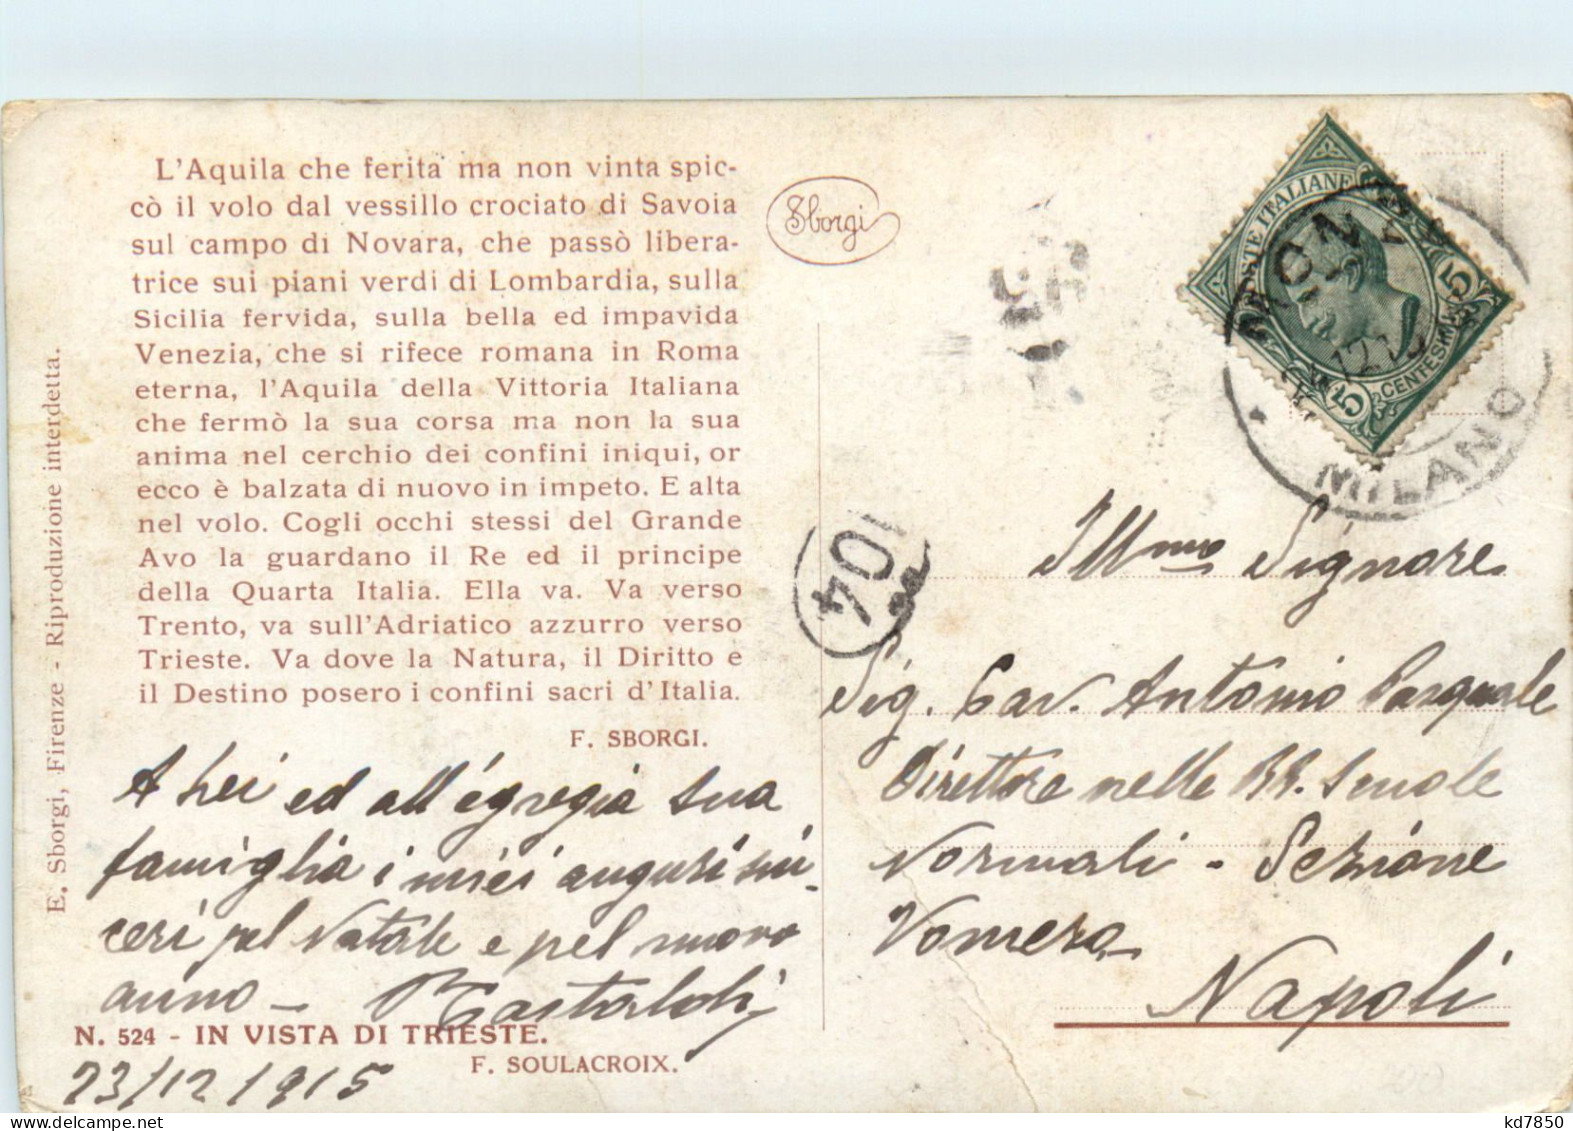 L'Aquila che ferita ma non vinta spic-
cò il volo dal vessillo crociato di Savoia
sul campo di Novara, che passò libera-
trice sui piani verdi di Lombardia, sulla
Sicilia fervida, sulla bella ed impavida
Venezia, che si rifece romana in Roma
eterna, l'Aquila della Vittoria Italiana
che fermò la sua corsa ma non la sua
anima nel cerchio dei confini iniqui, or
ecco è balzata di nuovo in impeto. E alta
nel volo. Cogli occhi stessi del Grande
Avo la guardano il Re ed il principe
della Quarta Italia. Ella va. Va verso
Trento, va sull'Adriatico azzurro verso
Trieste. Va dove la Natura, il Diritto e
il Destino posero i confini sacri d'Italia.
F. SBORGI.
A Lei ed all'egregia sua
famiglia i miei auguri sin-
ceri pel Natale e pel nuovo
anno -
N. 524 - IN VISTA DI TRIESTE.
F. SOULACROIX.
23/12/1915
E. Sborgi, Firenze - Riproduzione interdetta.
Sborgi
POSTE ITALIANE
5 CENTESIMI 5
MILANO
104
Ill^mo Signore
Sig. Cav. Antonio Pasquale
Direttore nelle RR. Scuole
Normali - Sezione
Vomero
Napoli
kd7850